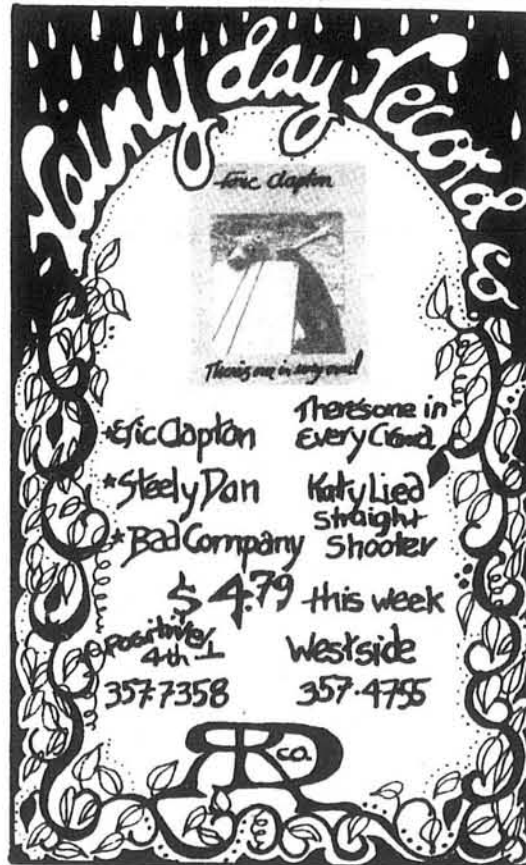 rainy day records
Eric Clapton
There's one in every crowd
*Eric Clapton
There's one in
Every Crowd
*Steely Dan
Katy Lied
*Bad Company
Straight
Shooter
$4.79 this week
Positively
4th
Westside
357-7358
357-4755
RRD
co.